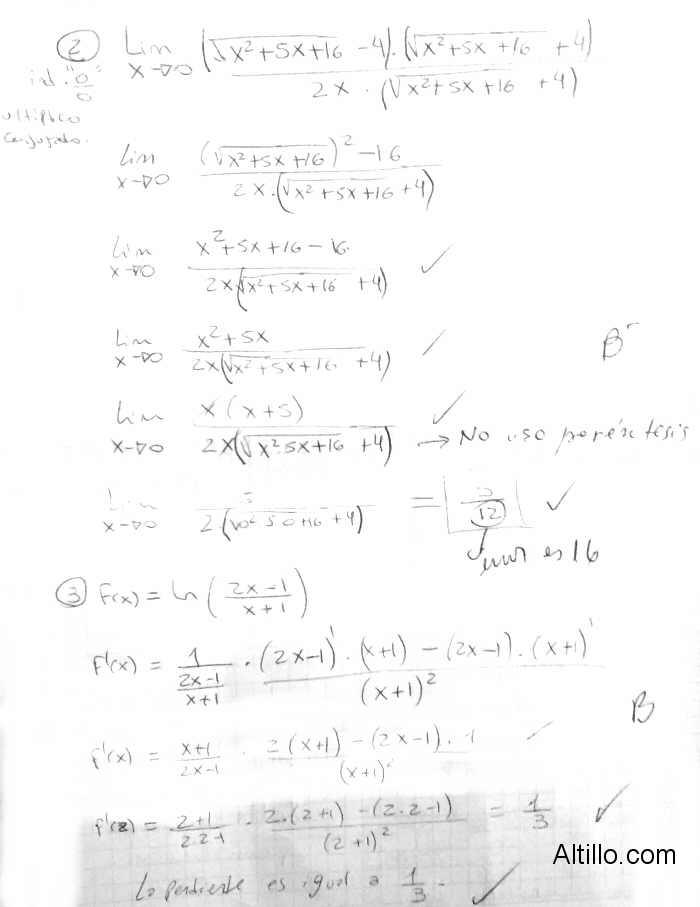 ② Lim x→0 (√x²+5x+16 -4).(√x²+5x+16 +4) / 2x.(√x²+5x+16 +4)
ind. "0/0"
conjugado.
Lim x→0 (√x²+5x+16)² -16 / 2x.(√x²+5x+16 +4)
Lim x→0 x²+5x+16-16 / 2x(√x²+5x+16 +4) ✓
Lim x→0 x²+5x / 2x(√x²+5x+16 +4) ✓
B⁻
Lim x→0 x(x+5) / 2x(√x² 5x+16 +4) ✓ → No uso paréntesis
Lim x→0 5 / 2.(√0² 5 0+16 +4) = 5/12 ✓
es 16
③ F(x) = ln(2x-1 / x+1)
F'(x) = 1 / (2x-1 / x+1) . (2x-1)'.(x+1) - (2x-1).(x+1)' / (x+1)²
B
F'(x) = x+1 / 2x-1 . 2(x+1) - (2x-1).1 / (x+1)² ✓
F'(2) = 2+1 / 2.2-1 . 2.(2+1) - (2.2-1) / (2+1)² = 1/3 ✓
Altillo.com
La pendiente es igual a 1/3. ✓